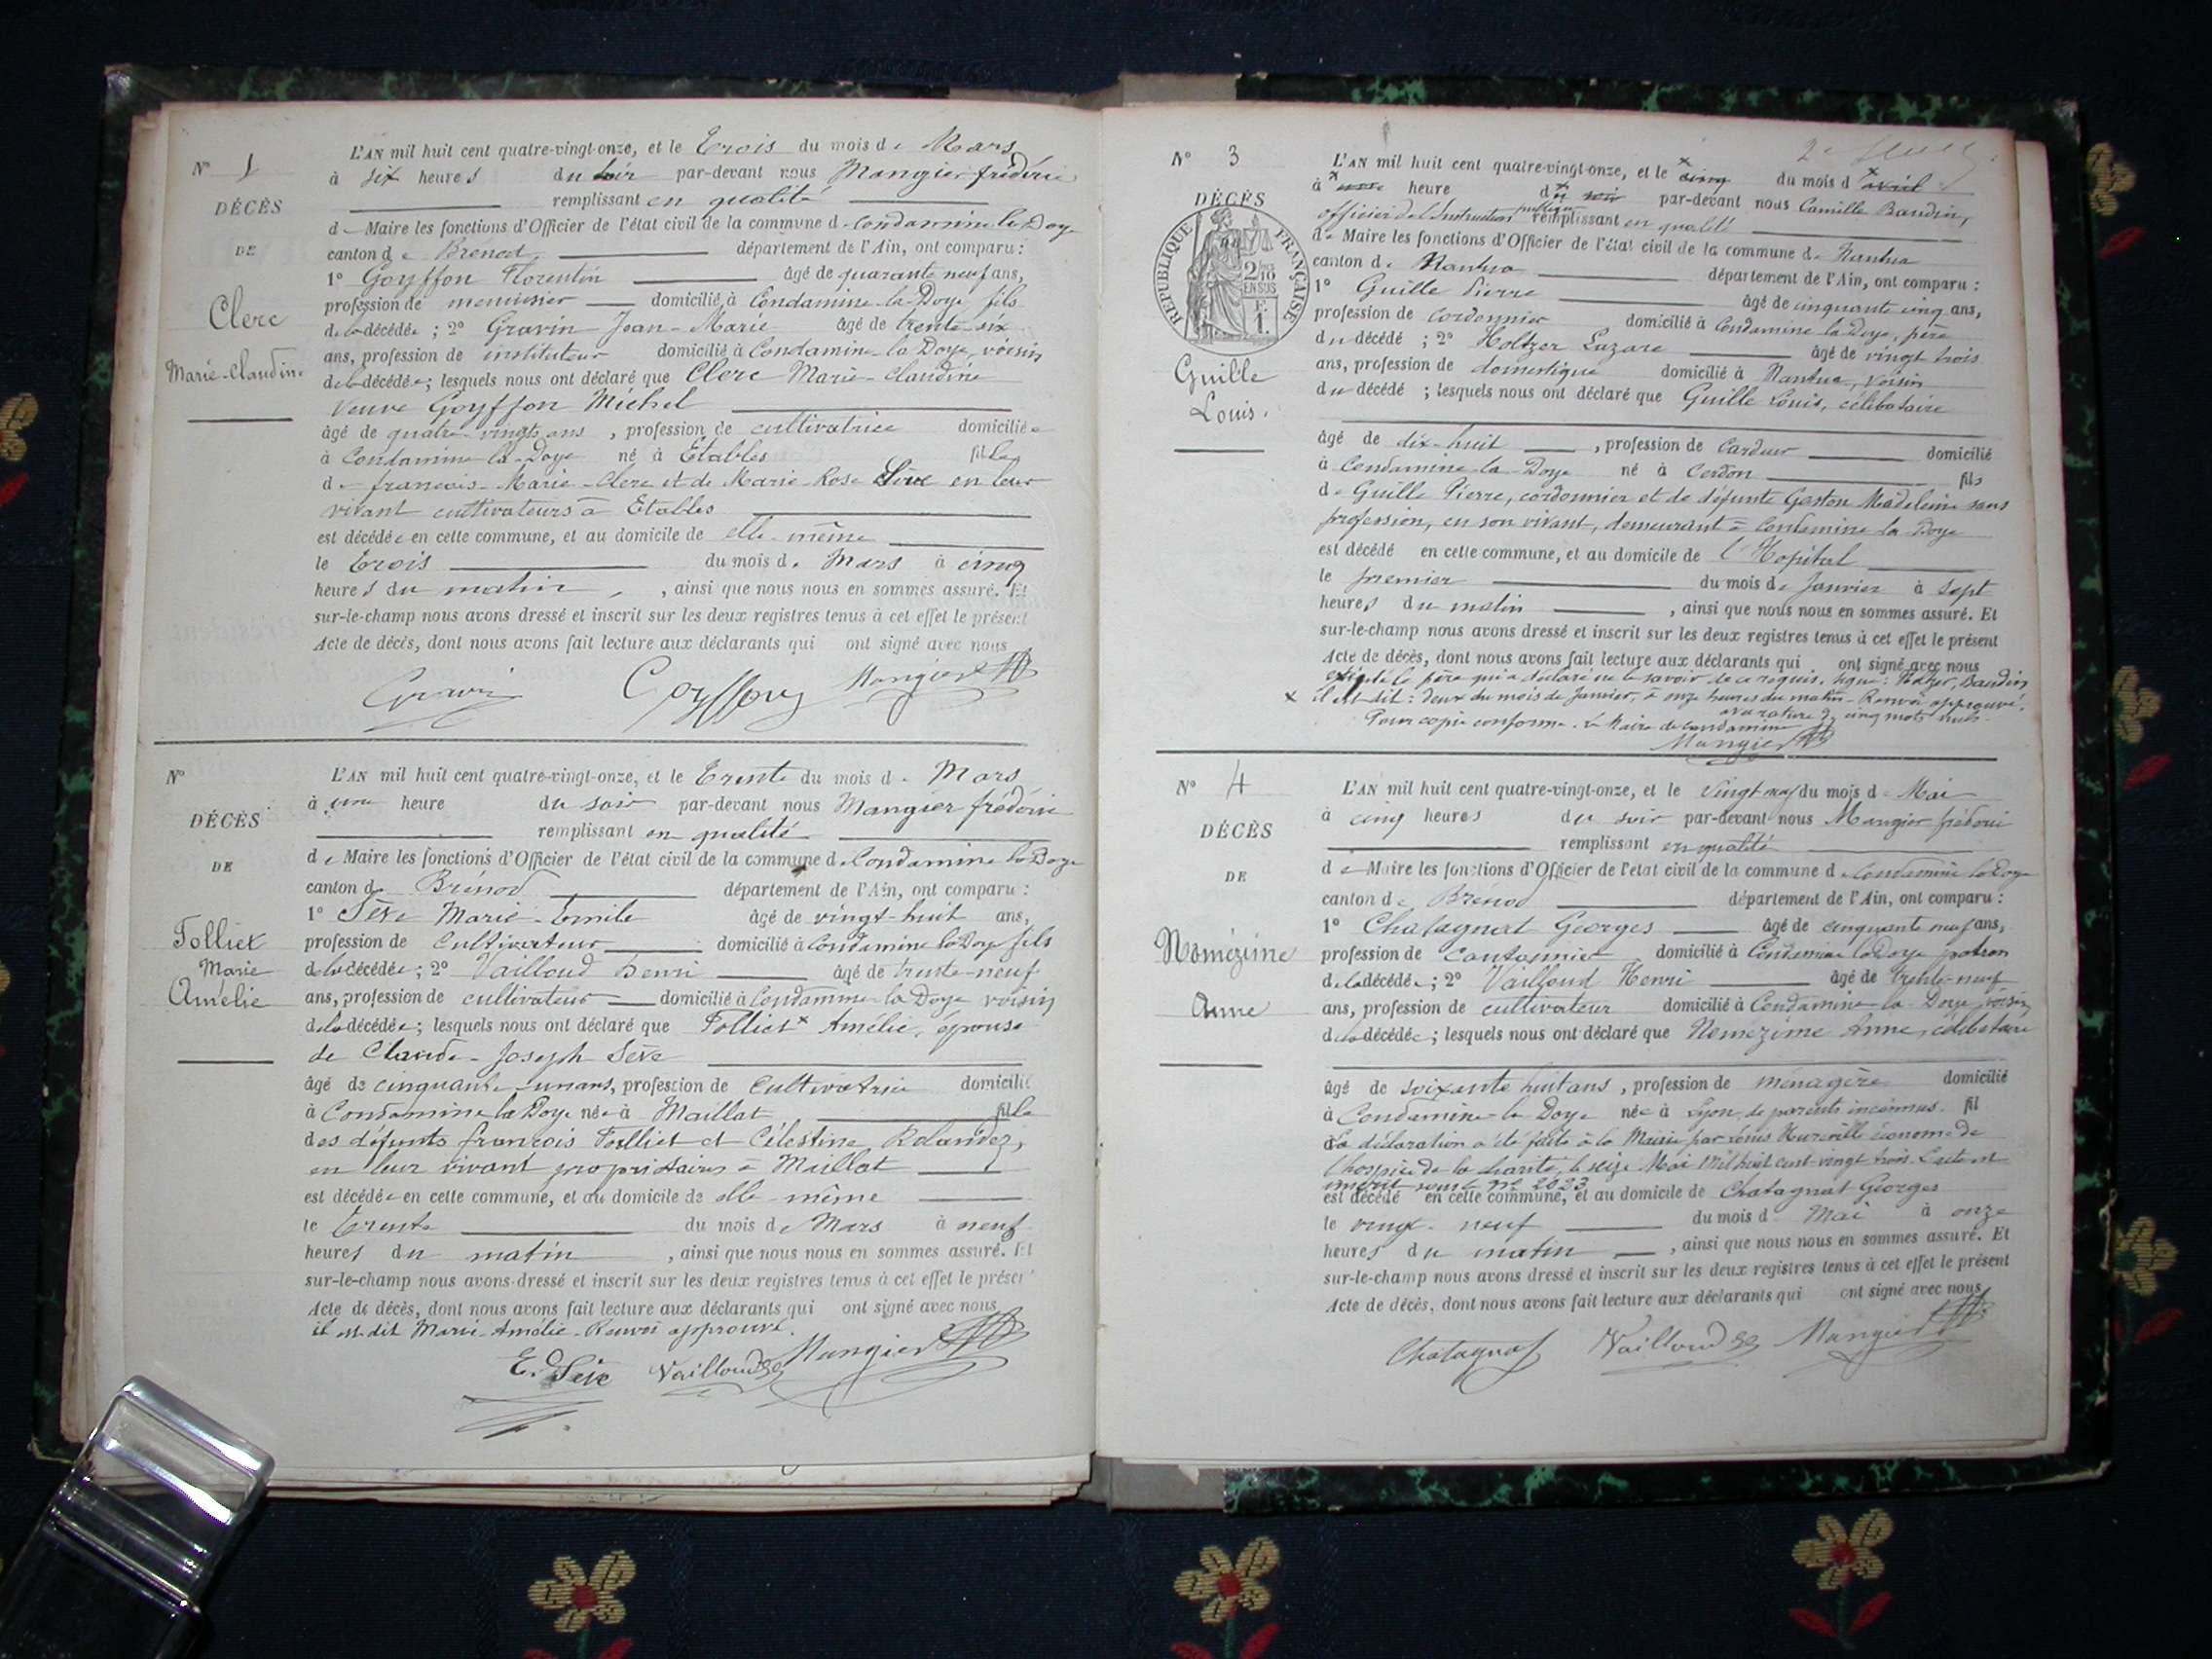 N° 1
DÉCÈS
DE
Clerc
Marie-Claudine
L'AN mil huit cent quatre-vingt-onze, et le Trois du mois de Mars
à six heures du soir par-devant nous Mangier frédéric
remplissant en qualité
de Maire les fonctions d'Officier de l'état civil de la commune de Condamine la Doye
canton de Brenod département de l'Ain, ont comparu :
1° Goyffon Florentin âgé de quarante neuf ans,
profession de menuisier domicilié à Condamine-la-Doye fils
de la décédée ; 2° Gravin Jean-Marie âgé de trente-six
ans, profession de instituteur domicilié à Condamine-la Doye, voisin
de la décédée ; lesquels nous ont déclaré que Clerc Marie-Claudine
veuve Goyffon Michel
âgé de quatre vingts ans , profession de cultivatrice domiciliée
à Condamine-la-Doye né à Etables fille
de françois-Marie-Clerc et de Marie-Rose Sève en leur
vivant cultivateurs à Etables
est décédée en cette commune, et au domicile de elle-même
le trois du mois de Mars à cinq
heures du matin , ainsi que nous nous en sommes assuré. Et
sur-le-champ nous avons dressé et inscrit sur les deux registres tenus à cet effet le présent
Acte de décès, dont nous avons fait lecture aux déclarants qui ont signé avec nous
Gravin Goyffon Mangier
N°
DÉCÈS
DE
Folliet
Marie
Amélie
L'AN mil huit cent quatre-vingt-onze, et le Trente du mois de Mars
à une heure du soir par-devant nous Mangier frédéric
remplissant en qualité
de Maire les fonctions d'Officier de l'état civil de la commune de Condamine la Doye
canton de Brénod département de l'Ain, ont comparu :
1° Sève Marie-Emile âgé de vingt-huit ans,
profession de Cultivateur domicilié à Condamine la Doye fils
de la décédée ; 2° Vailloud Henri âgé de trente-neuf
ans, profession de cultivateur domicilié à Condamine-la Doye voisin
de la décédée ; lesquels nous ont déclaré que Folliet x Amélie, épouse
de Claude-Joseph Sève
âgé de cinquante-un ans, profession de Cultivatrice domicilié
à Condamine la Doye née à Maillat fille
des défunts françois Folliet et Célestine Rolandez,
en leur vivant propriétaires à Maillat
est décédée en cette commune, et au domicile de elle-même
le trente du mois de Mars à neuf
heures du matin , ainsi que nous nous en sommes assuré. Et
sur-le-champ nous avons dressé et inscrit sur les deux registres tenus à cet effet le présent
Acte de décès, dont nous avons fait lecture aux déclarants qui ont signé avec nous
il est dit Marie-Amélie-Renvoi approuvé.
E. Sève Vailloud Mangier
N° 3
DÉCÈS
RÉPUBLIQUE FRANÇAISE
2/10 EN SUS
Guille
Louis.
L'AN mil huit cent quatre-vingt-onze, et le x cinq du mois d x avril
à x une heure du x soir par-devant nous Camille Baudin,
officier de l'Instruction publique remplissant en qualité
de Maire les fonctions d'Officier de l'état civil de la commune de Nantua
canton de Nantua département de l'Ain, ont comparu :
1° Guille Pierre âgé de cinquante cinq ans,
profession de cordonnier domicilié à Condamine la Doye, père
du décédé ; 2° Holtzer Lazare âgé de vingt trois
ans, profession de domestique domicilié à Nantua, voisin
du décédé ; lesquels nous ont déclaré que Guille Louis, célibataire
âgé de dix-huit , profession de Cardeur domicilié
à Condamine-la-Doye né à Cerdon fils
de Guille Pierre, cordonnier et de défunte Goston Madeleine sans
profession, en son vivant, demeurant à Condamine-la-Doye
est décédé en cette commune, et au domicile de l'Hopital
le premier du mois de Janvier à sept
heures du matin , ainsi que nous nous en sommes assuré. Et
sur-le-champ nous avons dressé et inscrit sur les deux registres tenus à cet effet le présent
Acte de décès, dont nous avons fait lecture aux déclarants qui ont signé avec nous
le père qui a déclaré ne le savoir de ce requis. Signé : Holtzer, Baudin
x il est dit : deux du mois de Janvier, à onze heures du matin - Renvoi approuvé,
cinq mots nuls.
Pour copie conforme. Le Maire de Condamine
Mangier
N° 4
DÉCÈS
DE
Nomézime
Anne
L'AN mil huit cent quatre-vingt-onze, et le Vingt-neuf du mois de Mai
à cinq heures du soir par-devant nous Mangier frédéric
remplissant en qualité
de Maire les fonctions d'Officier de l'état civil de la commune de Condamine la Doye
canton de Brénod département de l'Ain, ont comparu :
1° Chatagnat Georges âgé de cinquante neuf ans,
profession de Cantonnier domicilié à Condamine la Doye patron
de la décédée ; 2° Vailloud Henri âgé de trente-neuf
ans, profession de cultivateur domicilié à Condamine-la-Doye, voisin
de la décédée ; lesquels nous ont déclaré que Nomézime Anne, célibataire
âgé de soixante huit ans , profession de ménagère domicilié
à Condamine-la Doye née à Lyon, de parents inconnus. fil
La déclaration a été faite à la Mairie par Louis économe de
l'hospice de la charité, le seize Mai mil huit cent-vingt trois. L'acte est
inscrit sous le n° 2023
est décédé en cette commune, et au domicile de Chatagnat Georges
le vingt-neuf du mois d Mai à onze
heures du matin , ainsi que nous nous en sommes assuré. Et
sur-le-champ nous avons dressé et inscrit sur les deux registres tenus à cet effet le présent
Acte de décès, dont nous avons fait lecture aux déclarants qui ont signé avec nous
Chatagnat Vailloud Mangier